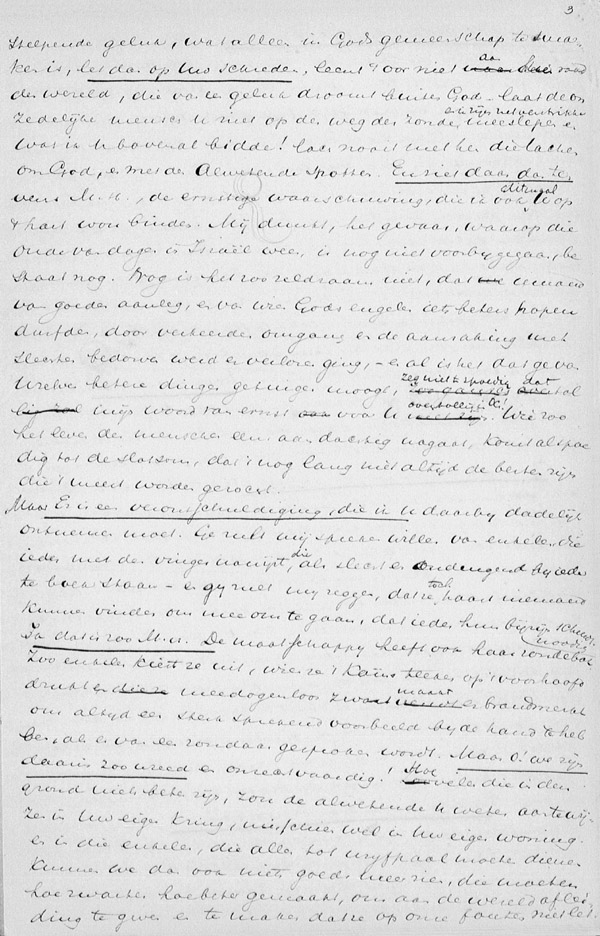 3
helpende geluk, wat alleen in Gods gemeenschap te sma-
ken is, let dan op Uw schreden, leent 't oor niet aan
de wereld, die van een geluk droomt buiten God - laat de on
zedelijke mensch U niet op de weg der zonde meesleepen en
wat ik U bovenal bidde! lacht nooit met hen die lachen
om God, en met den Alwetende spotten. En ziet daar dan te-
vens M.H., de ernstige waarschuwing, die ik ook ditmaal U op
't hart wou binden. Mij dunkt, het gevaar, waarop die
oude van dagen in Israël wees, is nog niet voorbijgegaan, be
staat nog. Nog is het zoo zeldzaam niet, dat iemand
van goeden aanleg, en van wien Gods engelen iets beters hopen
durfden, door verkeerden omgang en de aanraking met
slechten bedorven werd en verloren ging, - en al is het dat ge van
Uzelven betere dingen getuigen moogt, zeg niet te spoedig dat
mijn woord van ernst voor U overtollig is. Wie zoo
het leven der menschen eens aandachtig nagaat, komt al spoe
dig tot de slotsom, dat 't nog lang niet altijd de beste zijn
die 't meest worden geroemd.
Maar Er is een verontschuldiging, die ik U daarbij dadelijk
ontnemen moet. Ge zult mij spreken willen van enkelen, die
ieder met de vinger nawijst, die als slecht en ondeugend bij ieder
te boek staan - en gij zult mij zeggen, dat ze toch haast niemand
kunnen vinden om mee om te gaan, dat ieder hun bijzijn schuwt.
Ja dat is zoo M.H. De maatschappij heeft ook haar zondebok
Zoo enkelen kiest ze uit, wie ze 't Kaïnsteeken op 't voorhoofd
drukt en meedogenloos zwart maakt en brandmerkt
om altijd een sterk sprekend voorbeeld bij de hand te heb
ben, als er van een zondaar gesproken wordt. Maar O! we zijn
daarin zoo wreed en onrechtvaardig! Hoe velen die in den
grond niets beter zijn, zou de alwetende U weten aan te wij-
zen in Uw eigen kring, misschien wel in Uw eigen woning.
en in die enkelen, die allen tot wrijfpaal moeten dienen
kunnen we dan ook niets goeds meer zien, die moeten
hoe zwarter hoe beter gemaakt, om aan de wereld aflei
ding te geven en te maken dat ze op onze fouten niet let.